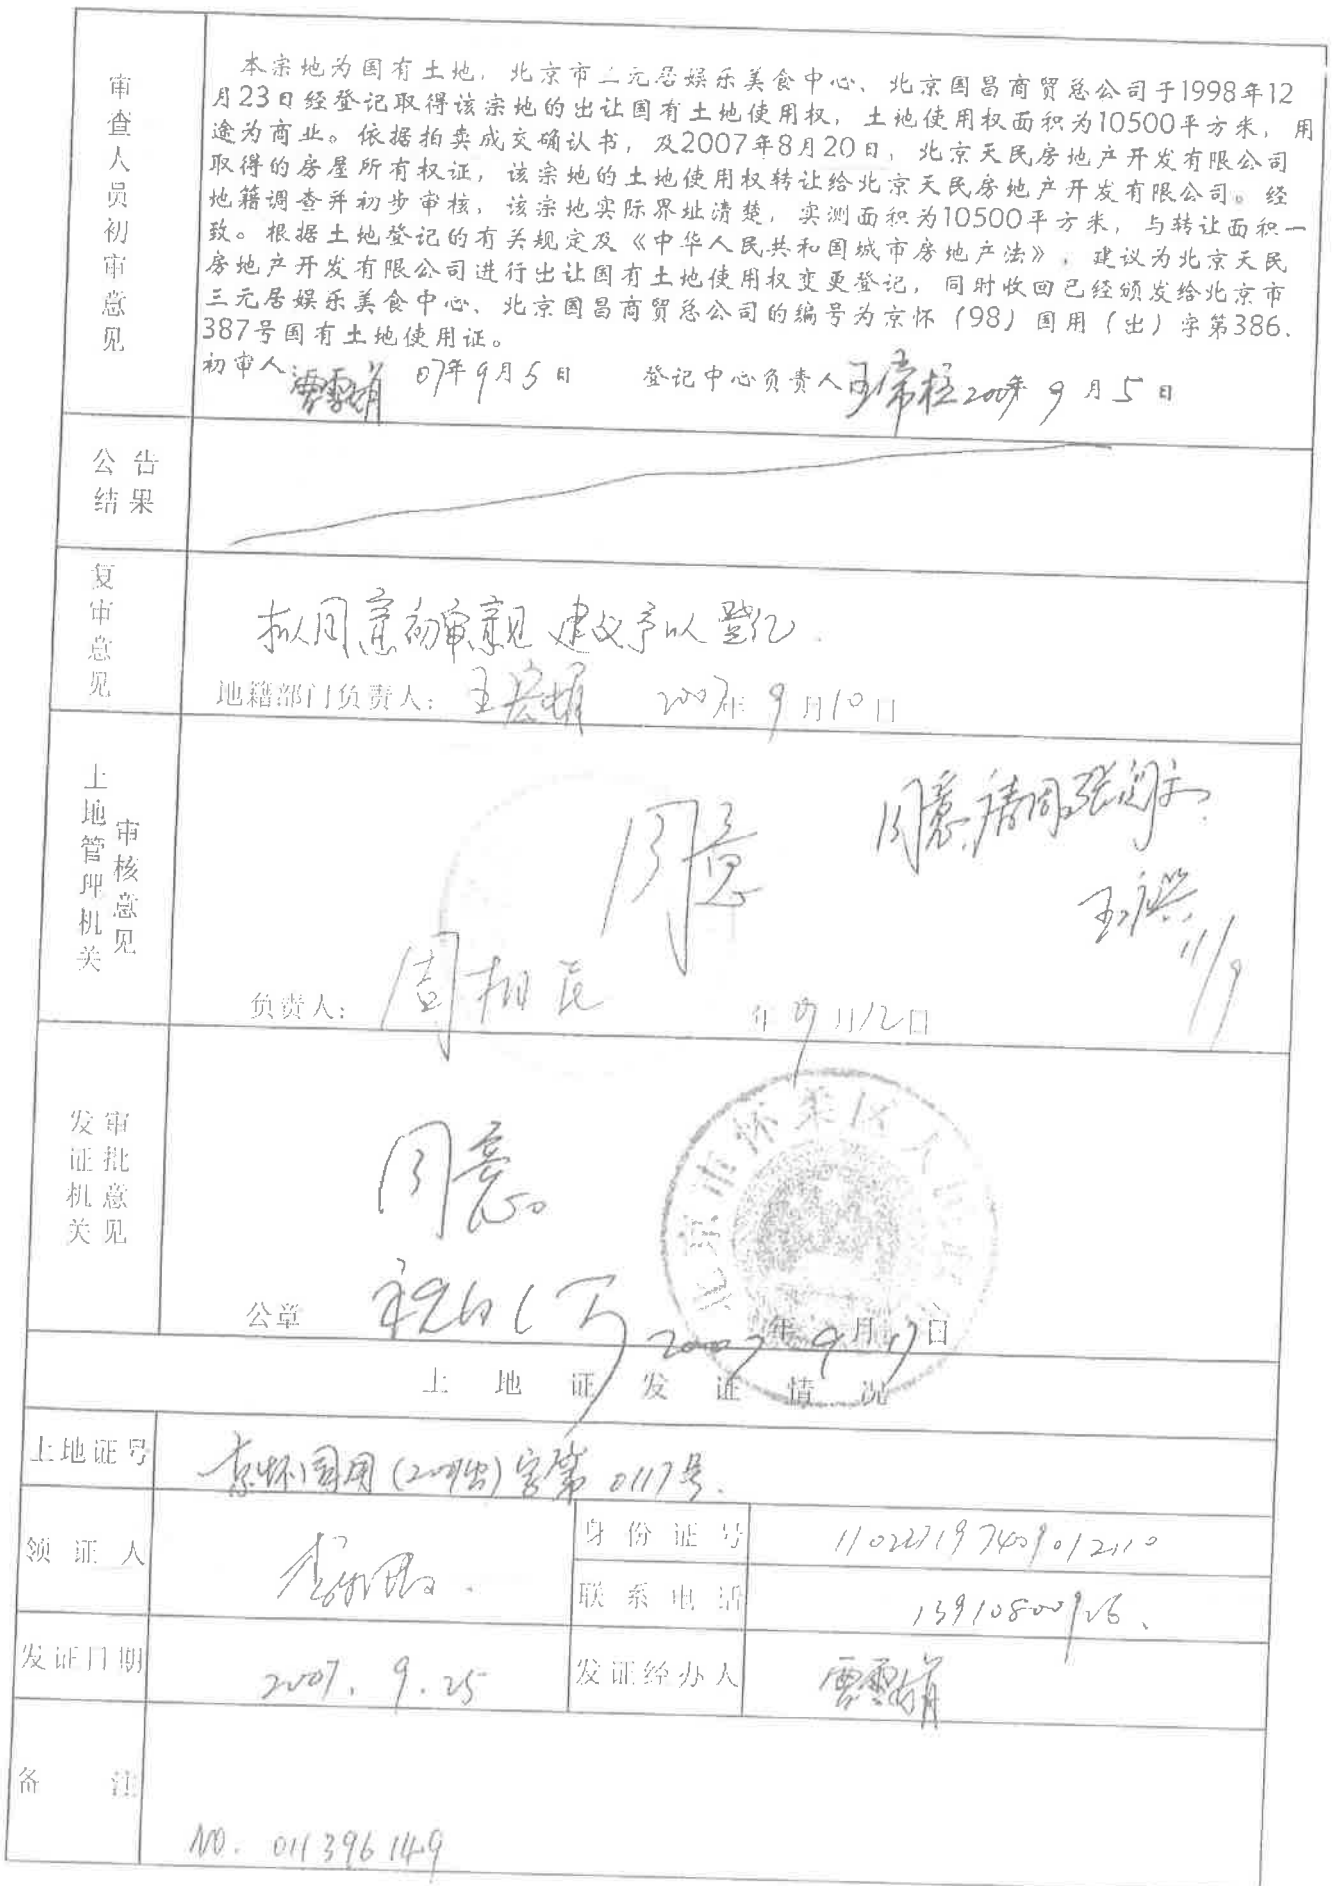 审查人员初审意见
本宗地为国有土地，北京市三元居娱乐美食中心、北京国昌商贸总公司于1998年12
月23日经登记取得该宗地的出让国有土地使用权，土地使用权面积为10500平方米，用
途为商业。依据拍卖成交确认书，及2007年8月20日，北京天民房地产开发有限公司
取得的房屋所有权证，该宗地的土地使用权转让给北京天民房地产开发有限公司。经
地籍调查并初步审核，该宗地实际界址清楚，实测面积为10500平方米，与转让面积一
致。根据土地登记的有关规定及《中华人民共和国城市房地产法》，建议为北京天民
房地产开发有限公司进行出让国有土地使用权变更登记，同时收回已经颁发给北京市
三元居娱乐美食中心、北京国昌商贸总公司的编号为京怀（98）国用（出）字第386、
387号国有土地使用证。
初审人： 07年9月5日 登记中心负责人 2007年9月5日
公告结果
复审意见
拟同意初审意见 建议予以登记.
地籍部门负责人： 2007年9月10日
土地管理机关审核意见
同意
同意,请周
11/9
负责人： 年9月12日
发证机关审批意见
同意
北京市怀柔区人民政府
公章 2007年9月17日
土地证发证情况
土地证号 京怀国用(2007出)字第0117号.
领证人
身份证号 110227197409012110
联系电话 13910800926.
发证日期 2007.9.25
发证经办人
备注
NO. 011396149